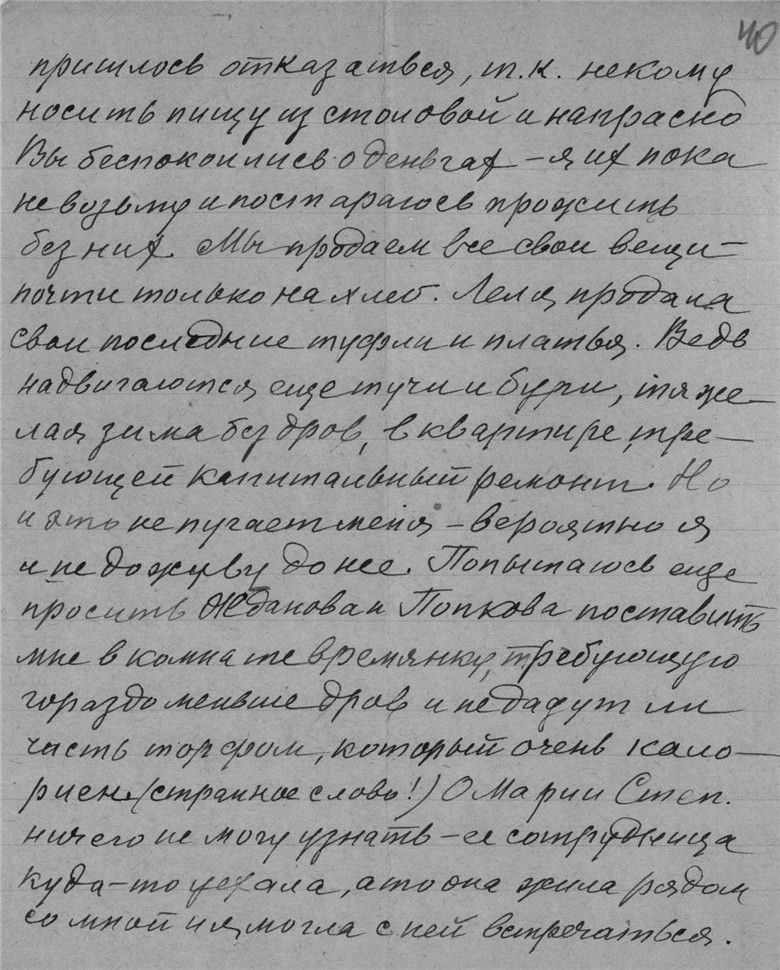 40
пришлось отказаться, т.к. некому
носить пищу из столовой и напрасно
Вы беспокоились о деньгах – я их пока
не возьму и постараюсь прожить
без них. Мы продаем все свои вещи –
почти только на хлеб. Леля продала
свои последние туфли и платья. Ведь
надвигаются еще тучи и бури, тяже–
лая зима без дров, в квартире, тре–
бующей капитальный ремонт. Но
и это не пугает меня – вероятно я
и не доживу до нее. Попытаюсь еще
просить Жданова и Попкова поставить
мне в комнате времянку, требующую
гораздо меньше дров и не дадут ли
часть торфом, который очень кало–
риен. (странное слово!) О Марии Степ.
ничего не могу узнать – ее сотрудница
куда-то уехала, а то она жила рядом
со мной и я могла с ней встречаться.